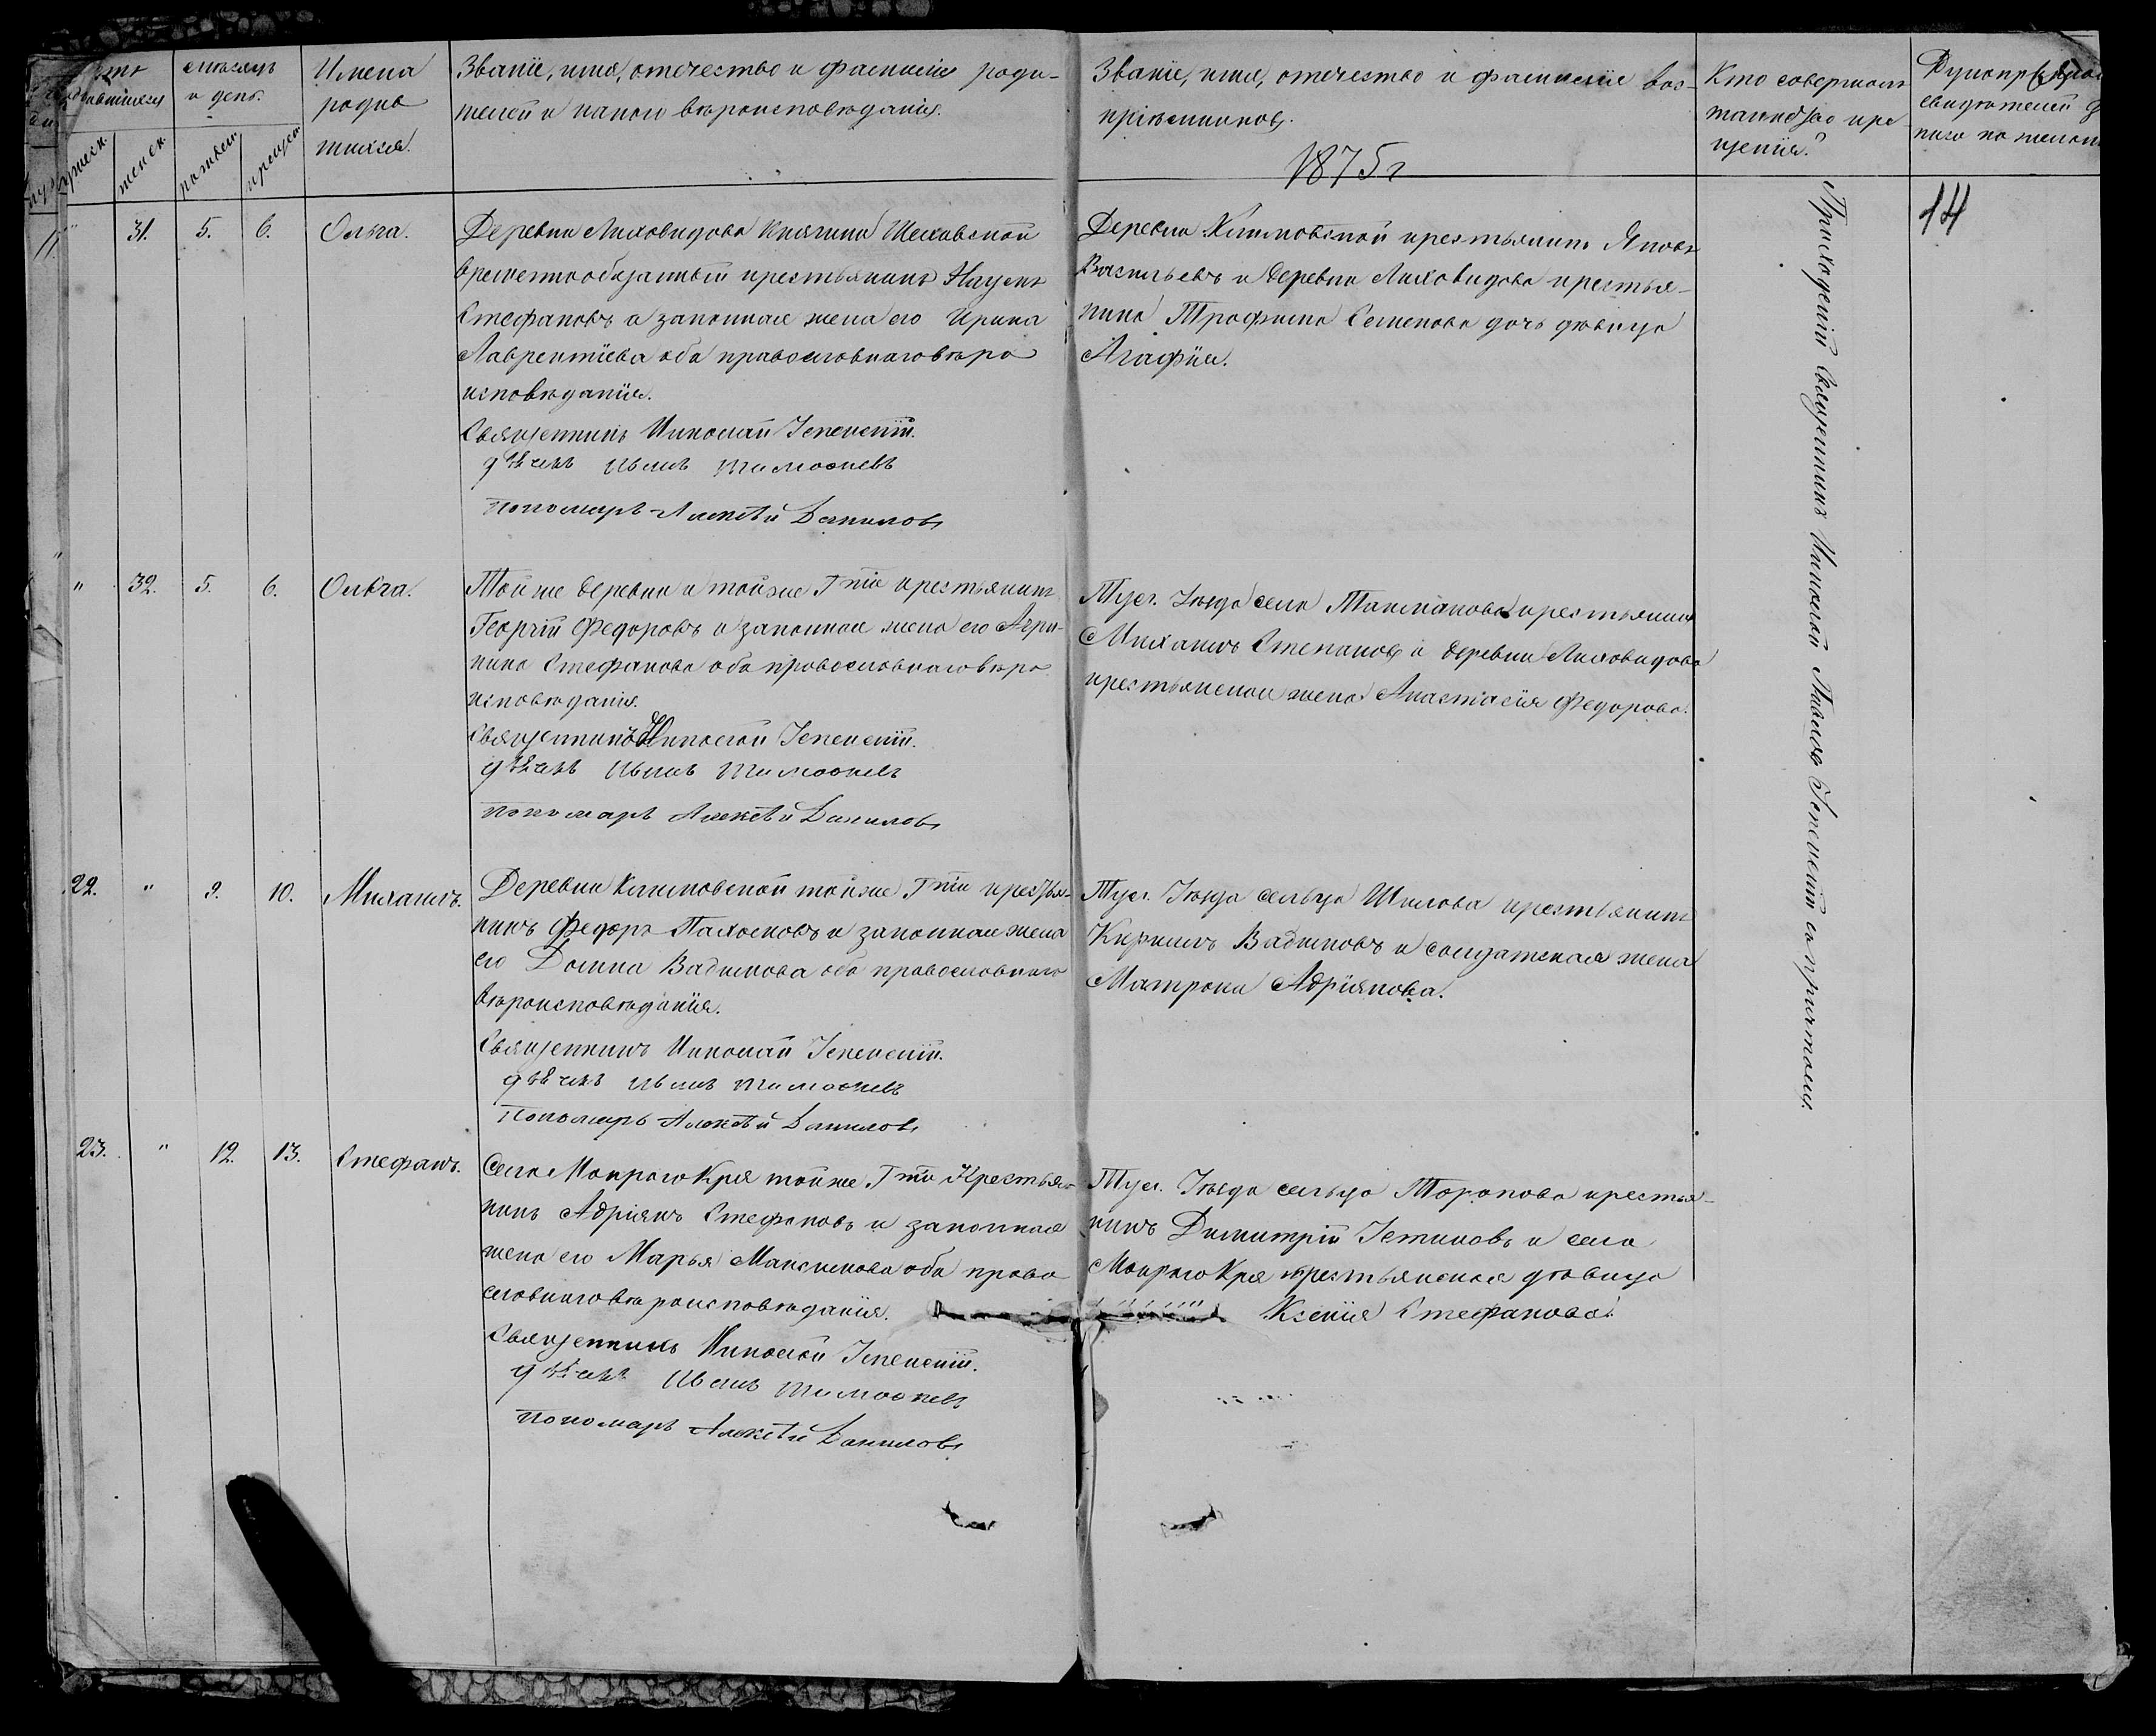 Счетъ родившихся
Мѣсяцъ и день.
Имена родив
шихся.
мужеск.
женск.
рожден.
крещен.
Званіе, имя, отечество и фамилія роди-
телей и какого вѣроисповѣданія.
Званіе, имя, отечество и фамилія вос-
пріемниковъ.
1875 г
Кто совершалъ
таинство кре-
щенія?
свидѣтелей
14
" 31. 5. 6. Ольга.
Деревни Лиховидова Княгини Шеховской
временнообязанный крестьянинъ Наумъ
Стефановъ и законная жена его Ирина
Лаврентіева оба православнаго вѣро
исповѣданія.
Священникъ Николай Успенскій.
дьячекъ Иванъ Тимофеевъ
Пономарь Алексѣй Даниловъ
Деревни Климовской крестьянинъ Яковъ
Васильевъ и деревни Лиховидова крестья-
нина Трофима Семенова дочь дѣвица
Агафія.
Приходскій Священникъ Николай Павловъ Успенскій съ причтомъ.
" 32. 5. 6. Ольга.
Той же деревни и той же Гжи крестьянинъ
Георгій Федоровъ и законная жена его Агри-
пина Стефанова оба православнаго вѣро
исповѣданія.
Священникъ Николай Успенскій.
дьячекъ Иванъ Тимофеевъ
пономарь Алексѣй Даниловъ
Тул. Уѣзда села крестьянинъ
Михаилъ Степановъ и деревни Лиховидова
крестьянская жена Анастасія Федорова.
22. " 9. 10. Михаилъ.
Деревни Климовской той же Гжи крестья-
нинъ Федоръ Пахомовъ и законная жена
его Домна Вадимова оба православнаго
вѣроисповѣданія.
Священникъ Николай Успенскій.
дьячекъ Иванъ Тимофеевъ
Пономарь Алексѣй Даниловъ
Тул. Уѣзда сельца Шилова крестьянинъ
Кирилъ Вадимовъ и солдатская жена
Матрона Адріянова.
23. " 12. 13. Стефанъ.
Села Мокраго Кря той же Гжи Крестья-
нинъ Адріянъ Стефановъ и законная
жена его Марья Максимова оба право
славнаго вѣроисповѣданія.
Священникъ Николай Успенскій.
дьячекъ Иванъ Тимофеевъ
пономарь Алексѣй Даниловъ
Тул. Уѣзда сельца Торопова крестья-
нинъ Димитрій Устиновъ и села
Мокраго Кря крестьянская дѣвица
Ксенія Стефанова.